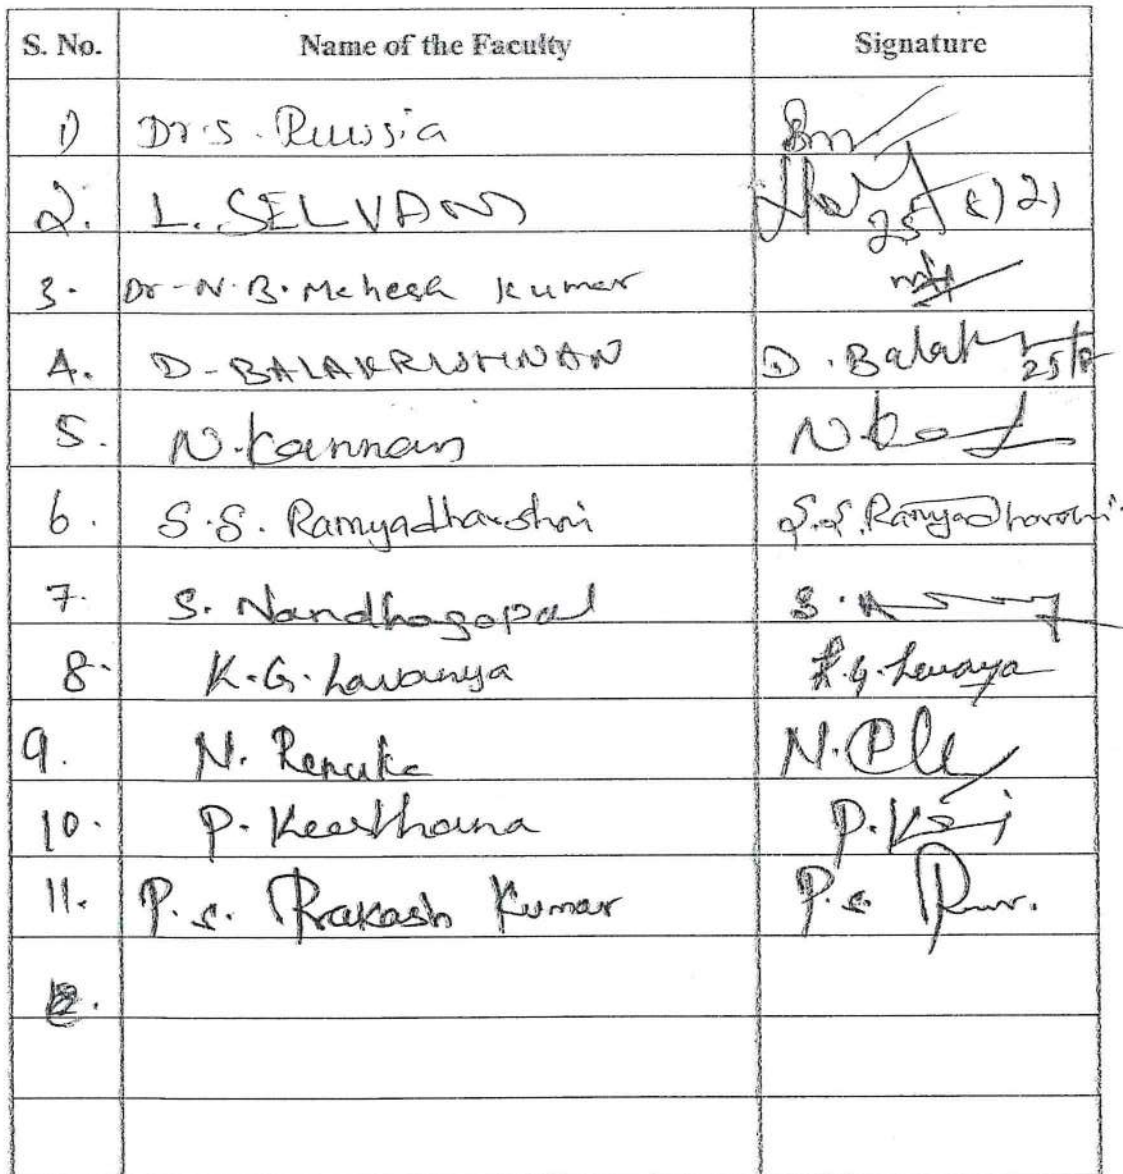 S. No. Name of the Faculty Signature
1) Dr. S. Ruwsia
2. L. SELVAM 25 21
3. Dr. N. B. Mahesh Kumar
4. D. BALAKRISHNAN D. Balak 25/8
5. N. Kannan N.
6. S. S. Ramyadharshni S. S. Ramyadharshni
7. S. Nandhagopal S.
8. K. G. Lavanya K. G. Lavanya
9. N. Renuka N.
10. P. Keerthana P.
11. P. S. Prakash Kumar P. S.
12.